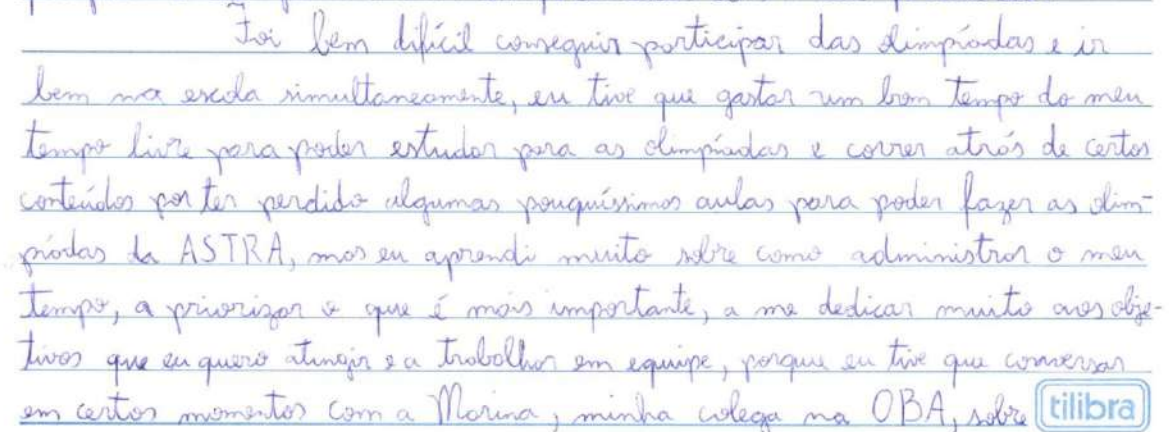 Foi bem difícil conseguir participar das olimpíadas e ir
bem na escola simultaneamente, eu tive que gastar um bom tempo do meu
tempo livre para poder estudar para as olimpíadas e correr atrás de certos
conteúdos por ter perdido algumas pouquíssimas aulas para poder fazer as olim-
píadas da ASTRA, mas eu aprendi muito sobre como administrar o meu
tempo, a priorizar o que é mais importante, a me dedicar muito aos obje-
tivos que eu quero atingir e a trabalhar em equipe, porque eu tive que conversar
em certos momentos com a Marina, minha colega na OBA, sobre
tilibra